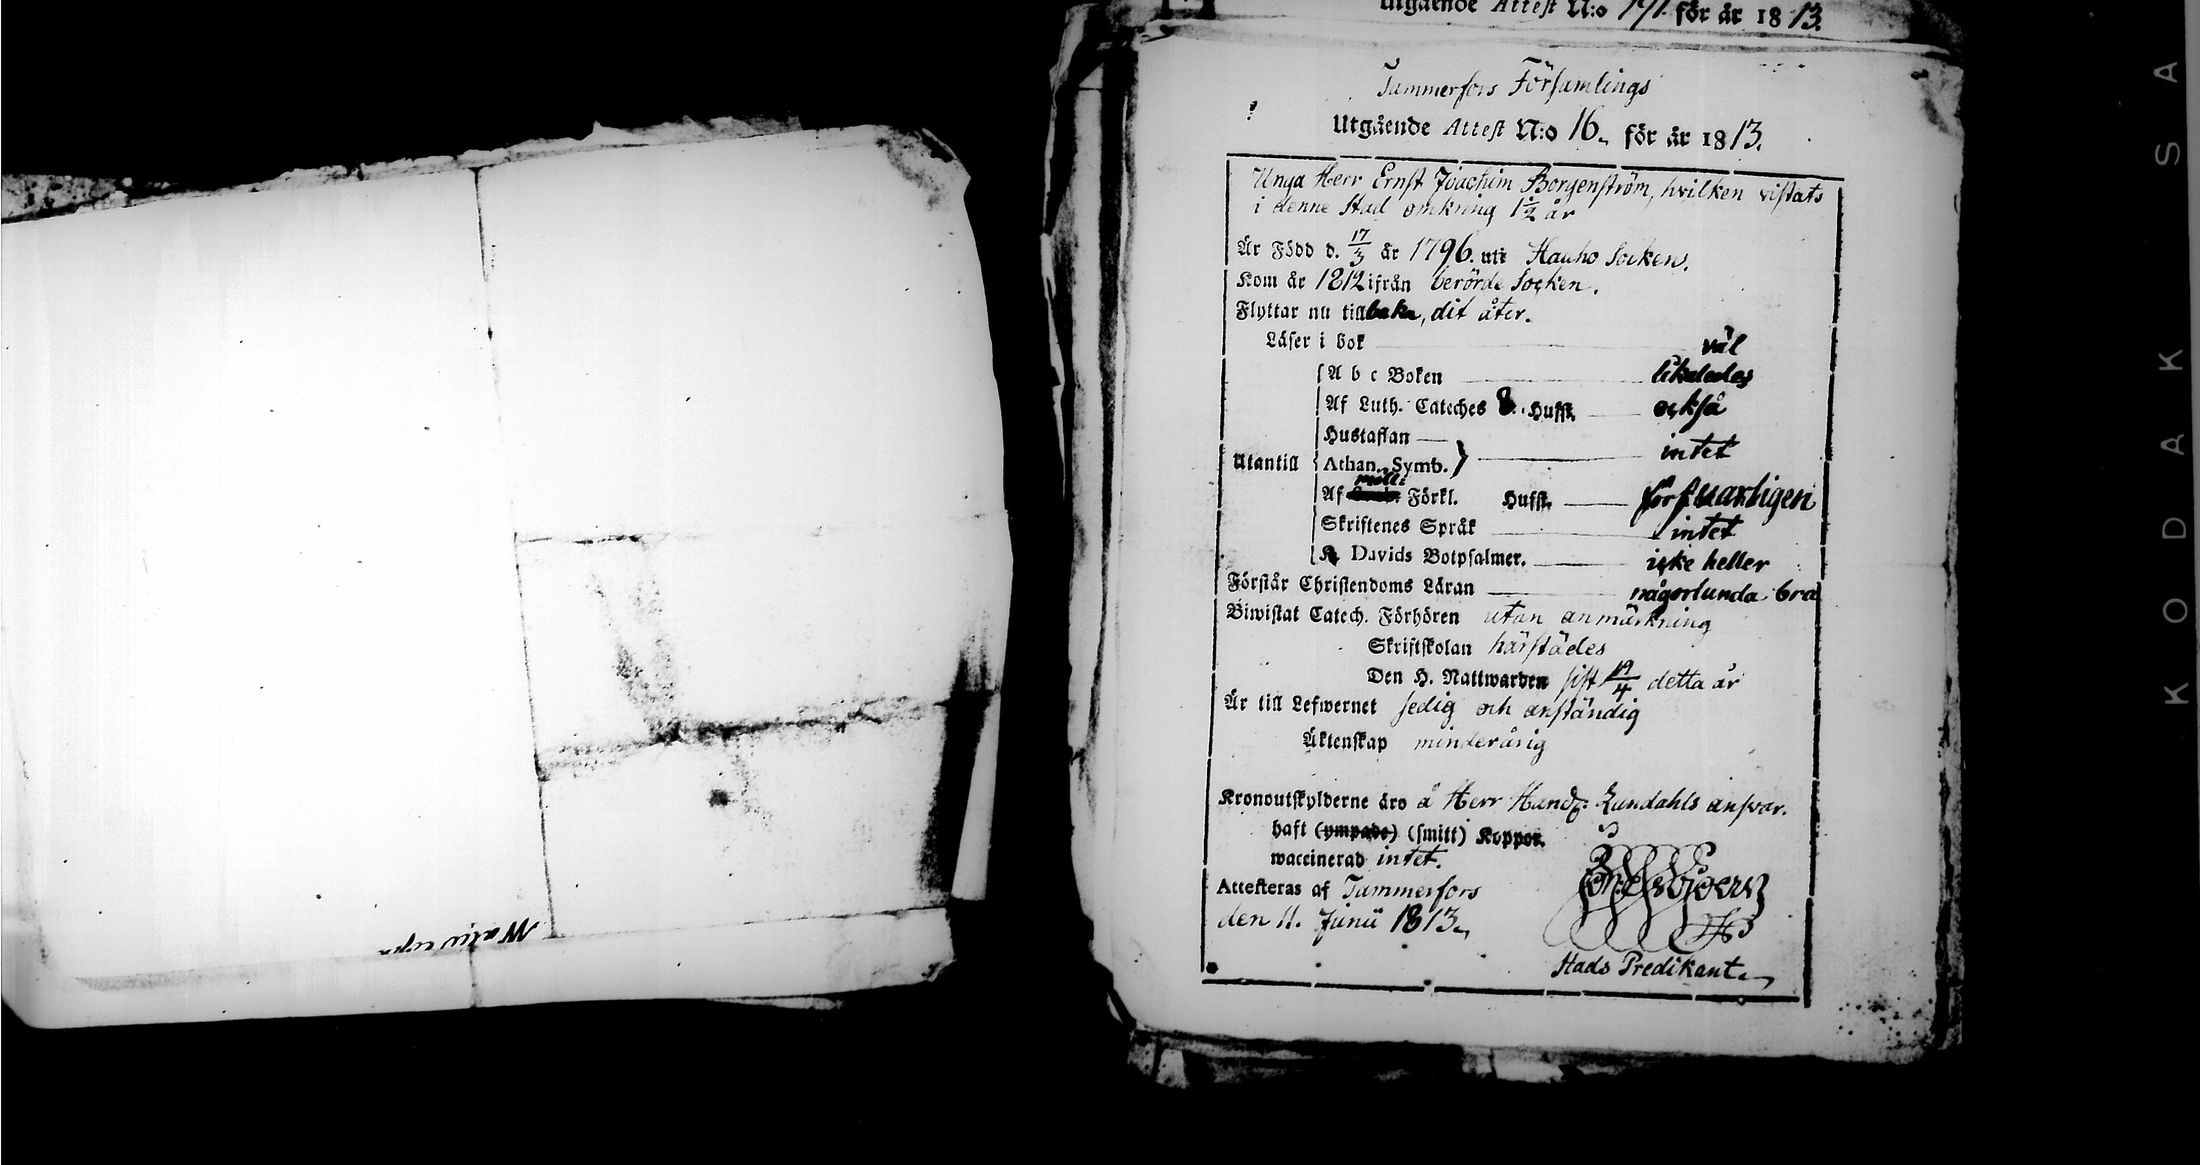 Utgående Attest N:o 191. för år 1813.
Tammerfors Församlings
Utgående Attest N:o 16. för år 1813.
Unga Herr Ernst Joachim Borgenström, hvilken vistats
i denne Stad omkring 1½ år
Är Född d. 17/3 år 1796. uti Hauho Socken.
Kom år 1812 ifrån berörde Socken.
Flyttar nu tillbaka, dit åter.
Läser i bok väl
A b c Boken likaledes
Af Luth. Cateches 8. Hufst. också
Hustaflan
Athan. Symb. } intet
Utantill
Af Förkl. Hufst. försvarligen
Skriftenes Språk intet
K. Davids Botpsalmer. icke heller
Förstår Christendoms Läran någorlunda bra
Biwistat Catech. Förhören utan anmärkning
Skriftskolan härstädes
Den H. Nattwarden sist /4 detta år
Är till Lefwernet sedig och anständig
Äktenskap minderårig
Kronoutskylderne äro å Herr Hand: Lundahls answar.
haft (ympade) (smitt) Koppor.
waccinerad intet.
Attesteras af Tammerfors
den 11. Junii 1813.
Stads Predikant.
KODAK SA